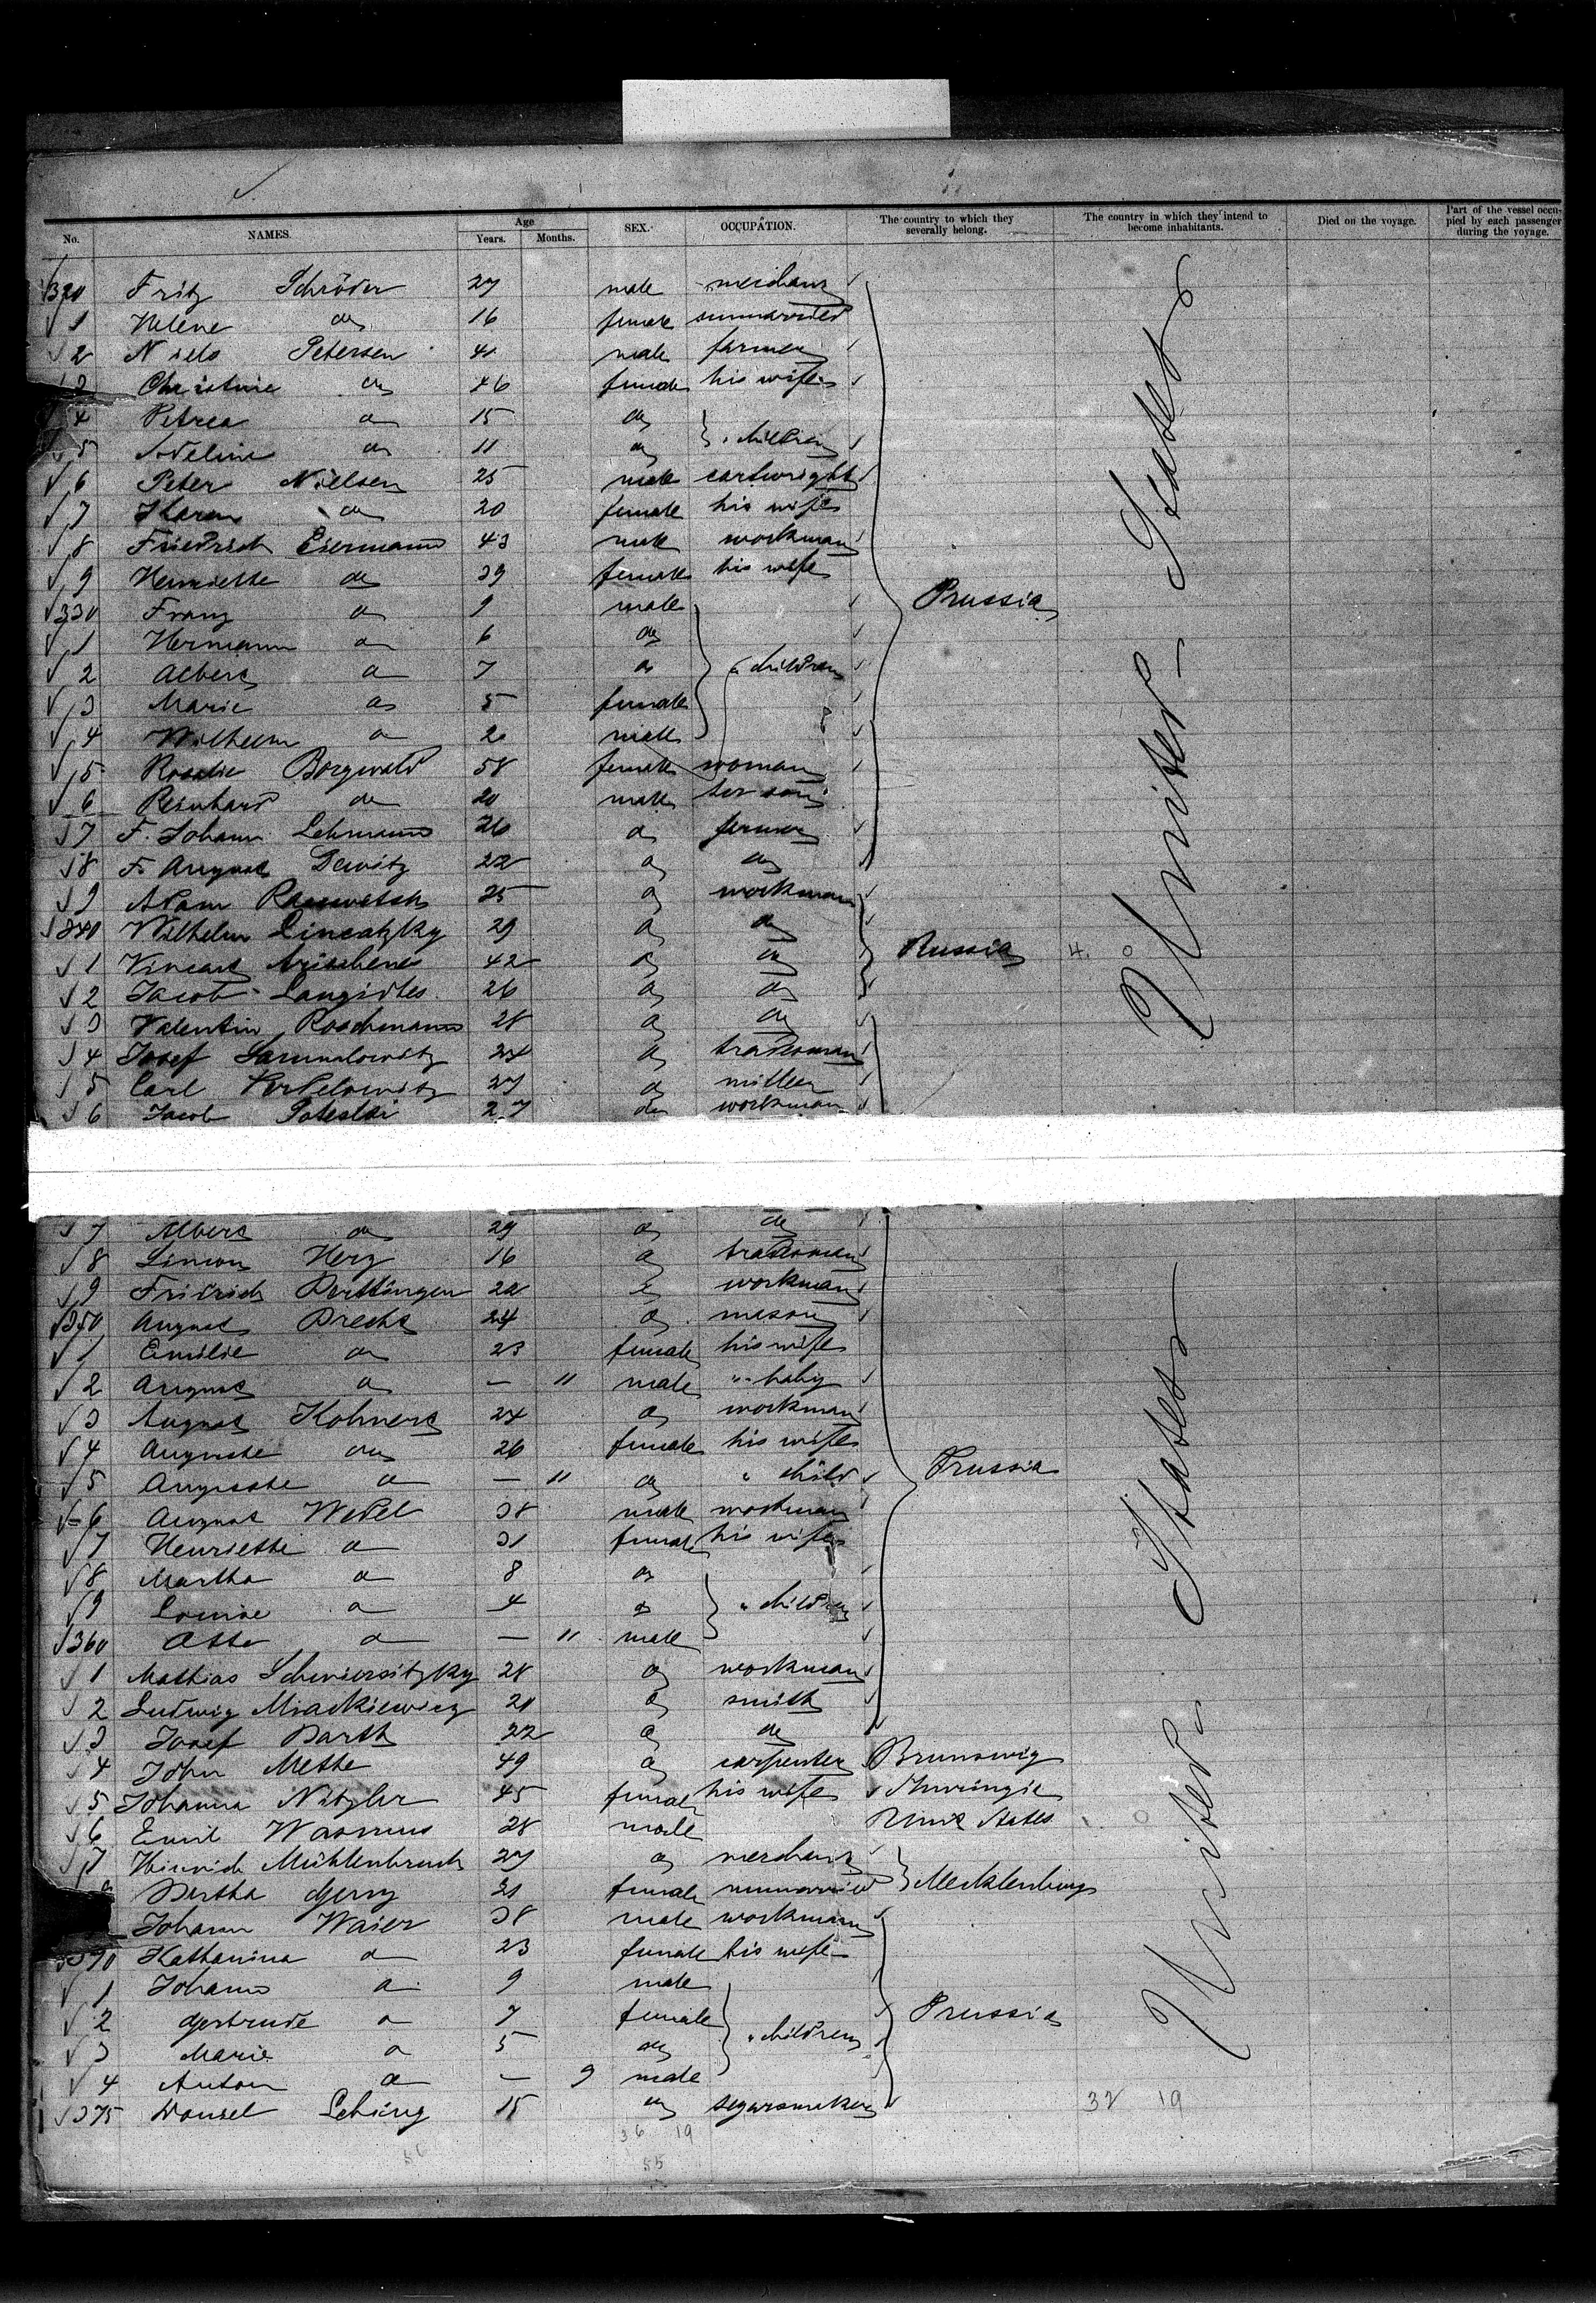 No. NAMES. Age Years. Months. SEX. OCCUPATION. The country to which they severally belong. The country in which they intend to become inhabitants. Died on the voyage. Part of the vessel occupied by each passenger during the voyage.
320 Fritz Schröder 27 male merchant
1 Helene do 16 female unmarried
2 Niels Petersen 41 male farmer
3 Christine do 46 female his wife
4 Petrea do 15 do
5 Adeline do 11 do " children
6 Peter Nielsen 25 male cartwright
7 Karen do 20 female his wife
8 Friedrich Eiermann 43 male workman
9 Henriette do 39 female his wife
330 Franz do 9 male Prussia
1 Hermann do 6 do
2 Albert do 7 do " children
3 Marie do 5 female
4 Wilhelm do male
5 Rosalie Borgwald 58 female woman
6 Reinhard do 20 male her son
7 F. Johann Lehmann 26 do farmer
8 F. August Dewitz 22 do do
9 Adam 25 do workman
340 Wilhelm 29 do do
1 Vincent 42 do do Russia 4. 0
2 Jacob 26 do do
3 Valentin Roschmann 28 do do
4 Josef 24 do tradesman
5 Carl 27 do miller
6 Jacob 27 do workman
7 Albert do 29 do do
8 Simon Herz 16 do tradesman
9 Fridrich 22 do workman
350 August 24 do mason
1 Emilie do 23 female his wife
2 August do — 11 male " baby
3 August Kohnert 24 do workman
4 Auguste do 26 female his wife
5 Auguste do — 11 do " child Prussia
6 August Wedel 38 male workman
7 Henriette do 31 female his wife
8 Martha do 8 do
9 Louise do 4 do " children
360 Otto do — 11 male
1 Mathias 28 do workman
2 Ludwig Miackiewicz 21 do smith
3 Josef Barth 22 do do
4 John Mette 49 do carpenter Brunswig
5 Johanna Nitzler 45 female his wife Thuringie
6 Emil Wasmus 28 male Unit States 0
7 Heinrich Mühlenbruch 27 do merchant
Bertha 21 female unmarried Mecklenburg
Johann Waier 38 male workman
370 Katharina do 23 female his wife
1 Johann do 9 male
2 Gertrude do 7 female Prussia
3 Marie do 5 do " children
4 Anton do — 9 male
375 15 do segarsmaker 32 19
36 19
55
United States
United States